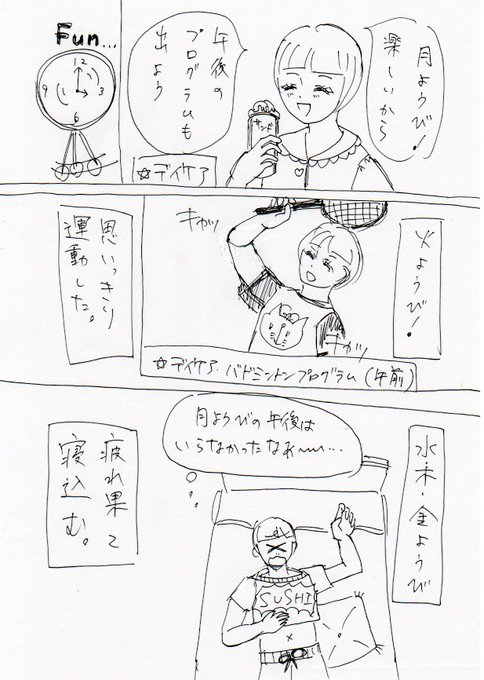 月ようび!
楽しいから
午後の
プログラムも
出よう
サンド
☆デイケア
Fun...
12
3
6
9
火ようび!
思いっきり
運動した。
☆デイケア・バドミントンプログラム(午前)
水・木・金ようび
月ようびの午後は
いらなかったなあ〜〜…
疲れ果て
寝込む。
SUSHI